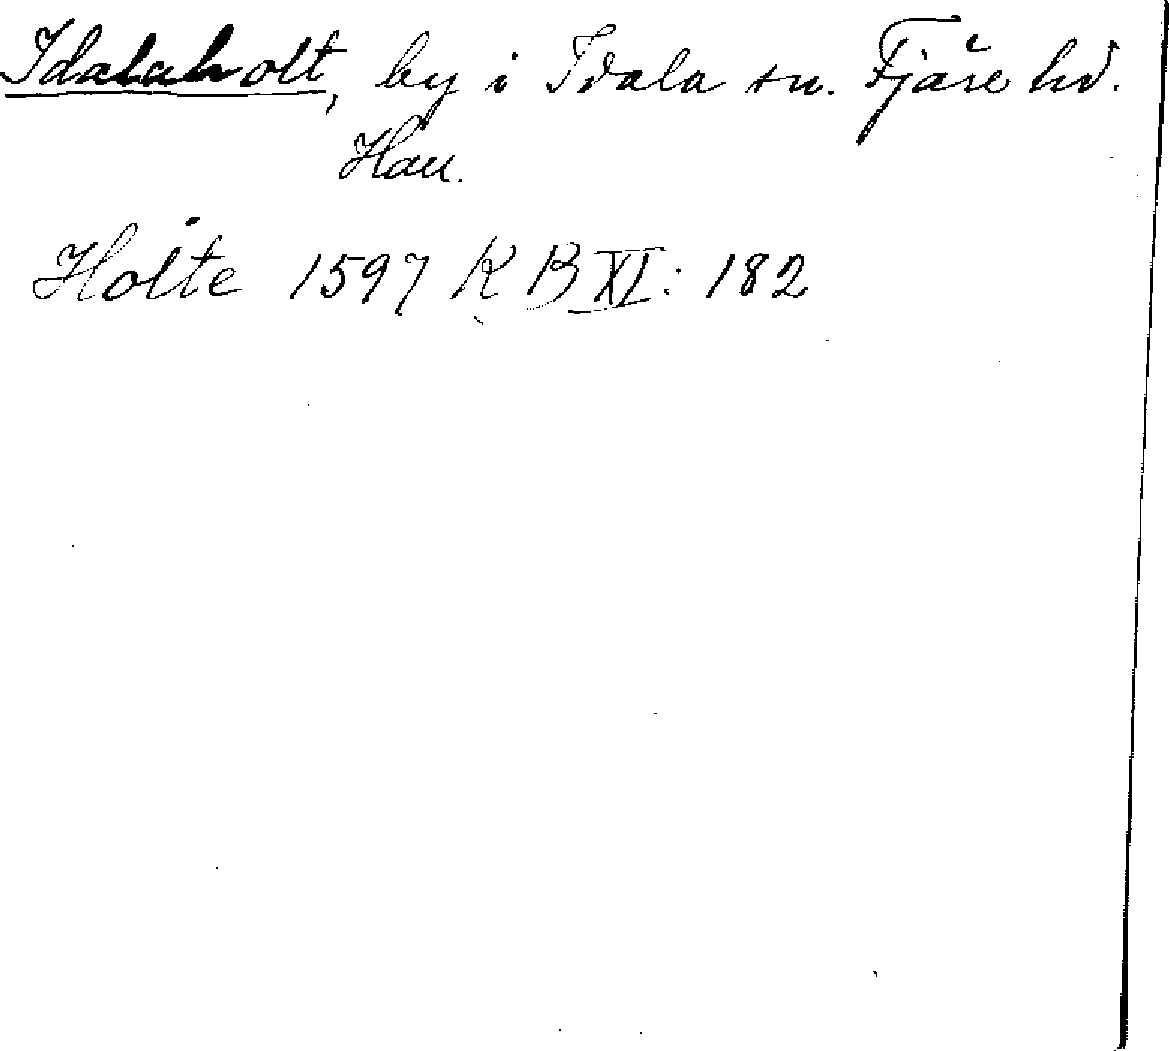 Idalaholt, by i Idala sn. Fjäre hd.
Hall.
Holte 1597 K B XI: 182